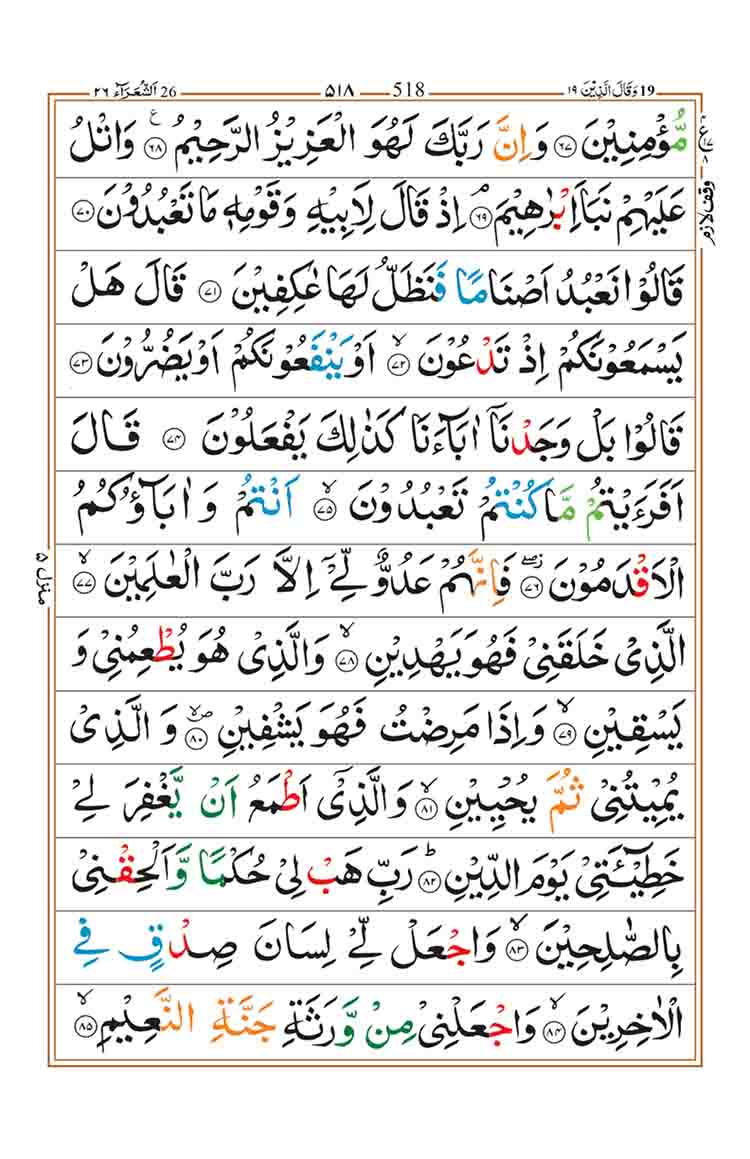 19 وَقَالَ الَّذِيْنَ ١٩ 518 ٥١٨ 26 اَلشُّعَرَآء ٢٦
مُّؤْمِنِيْنَ ﴿٦٧﴾ وَاِنَّ رَبَّكَ لَهُوَ الْعَزِيْزُ الرَّحِيْمُ ﴿٦٨﴾ع وَاتْلُ
عَلَيْهِمْ نَبَاَ اِبْرٰهِيْمَ ﴿٦٩﴾ۘ اِذْ قَالَ لِاَبِيْهِ وَقَوْمِهٖ مَا تَعْبُدُوْنَ ﴿٧٠﴾
قَالُوْا نَعْبُدُ اَصْنَامًا فَنَظَلُّ لَهَا عٰكِفِيْنَ ﴿٧١﴾ قَالَ هَلْ
يَسْمَعُوْنَكُمْ اِذْ تَدْعُوْنَ ﴿٧٢﴾ۙ اَوْ يَنْفَعُوْنَكُمْ اَوْ يَضُرُّوْنَ ﴿٧٣﴾
قَالُوْا بَلْ وَجَدْنَآ اٰبَآءَنَا كَذٰلِكَ يَفْعَلُوْنَ ﴿٧٤﴾ قَالَ
اَفَرَءَيْتُمْ مَّا كُنْتُمْ تَعْبُدُوْنَ ﴿٧٥﴾ۙ اَنْتُمْ وَاٰبَآؤُكُمُ
الْاَقْدَمُوْنَ ﴿٧٦﴾ۖز فَاِنَّهُمْ عَدُوٌّ لِّيْٓ اِلَّا رَبَّ الْعٰلَمِيْنَ ﴿٧٧﴾ۙ
الَّذِيْ خَلَقَنِيْ فَهُوَ يَهْدِيْنِ ﴿٧٨﴾ۙ وَالَّذِيْ هُوَ يُطْعِمُنِيْ وَ
يَسْقِيْنِ ﴿٧٩﴾ۙ وَاِذَا مَرِضْتُ فَهُوَ يَشْفِيْنِ ﴿٨٠﴾ۙص وَالَّذِيْ
يُمِيْتُنِيْ ثُمَّ يُحْيِيْنِ ﴿٨١﴾ۙ وَالَّذِيْٓ اَطْمَعُ اَنْ يَّغْفِرَ لِيْ
خَطِيْٓـَٔتِيْ يَوْمَ الدِّيْنِ ﴿٨٢﴾ؕ رَبِّ هَبْ لِيْ حُكْمًا وَّاَلْحِقْنِيْ
بِالصّٰلِحِيْنَ ﴿٨٣﴾ۙ وَاجْعَلْ لِّيْ لِسَانَ صِدْقٍ فِي
الْاٰخِرِيْنَ ﴿٨٤﴾ۙ وَاجْعَلْنِيْ مِنْ وَّرَثَةِ جَنَّةِ النَّعِيْمِ ﴿٨٥﴾ۙ
وقف لازم
منزل ٥